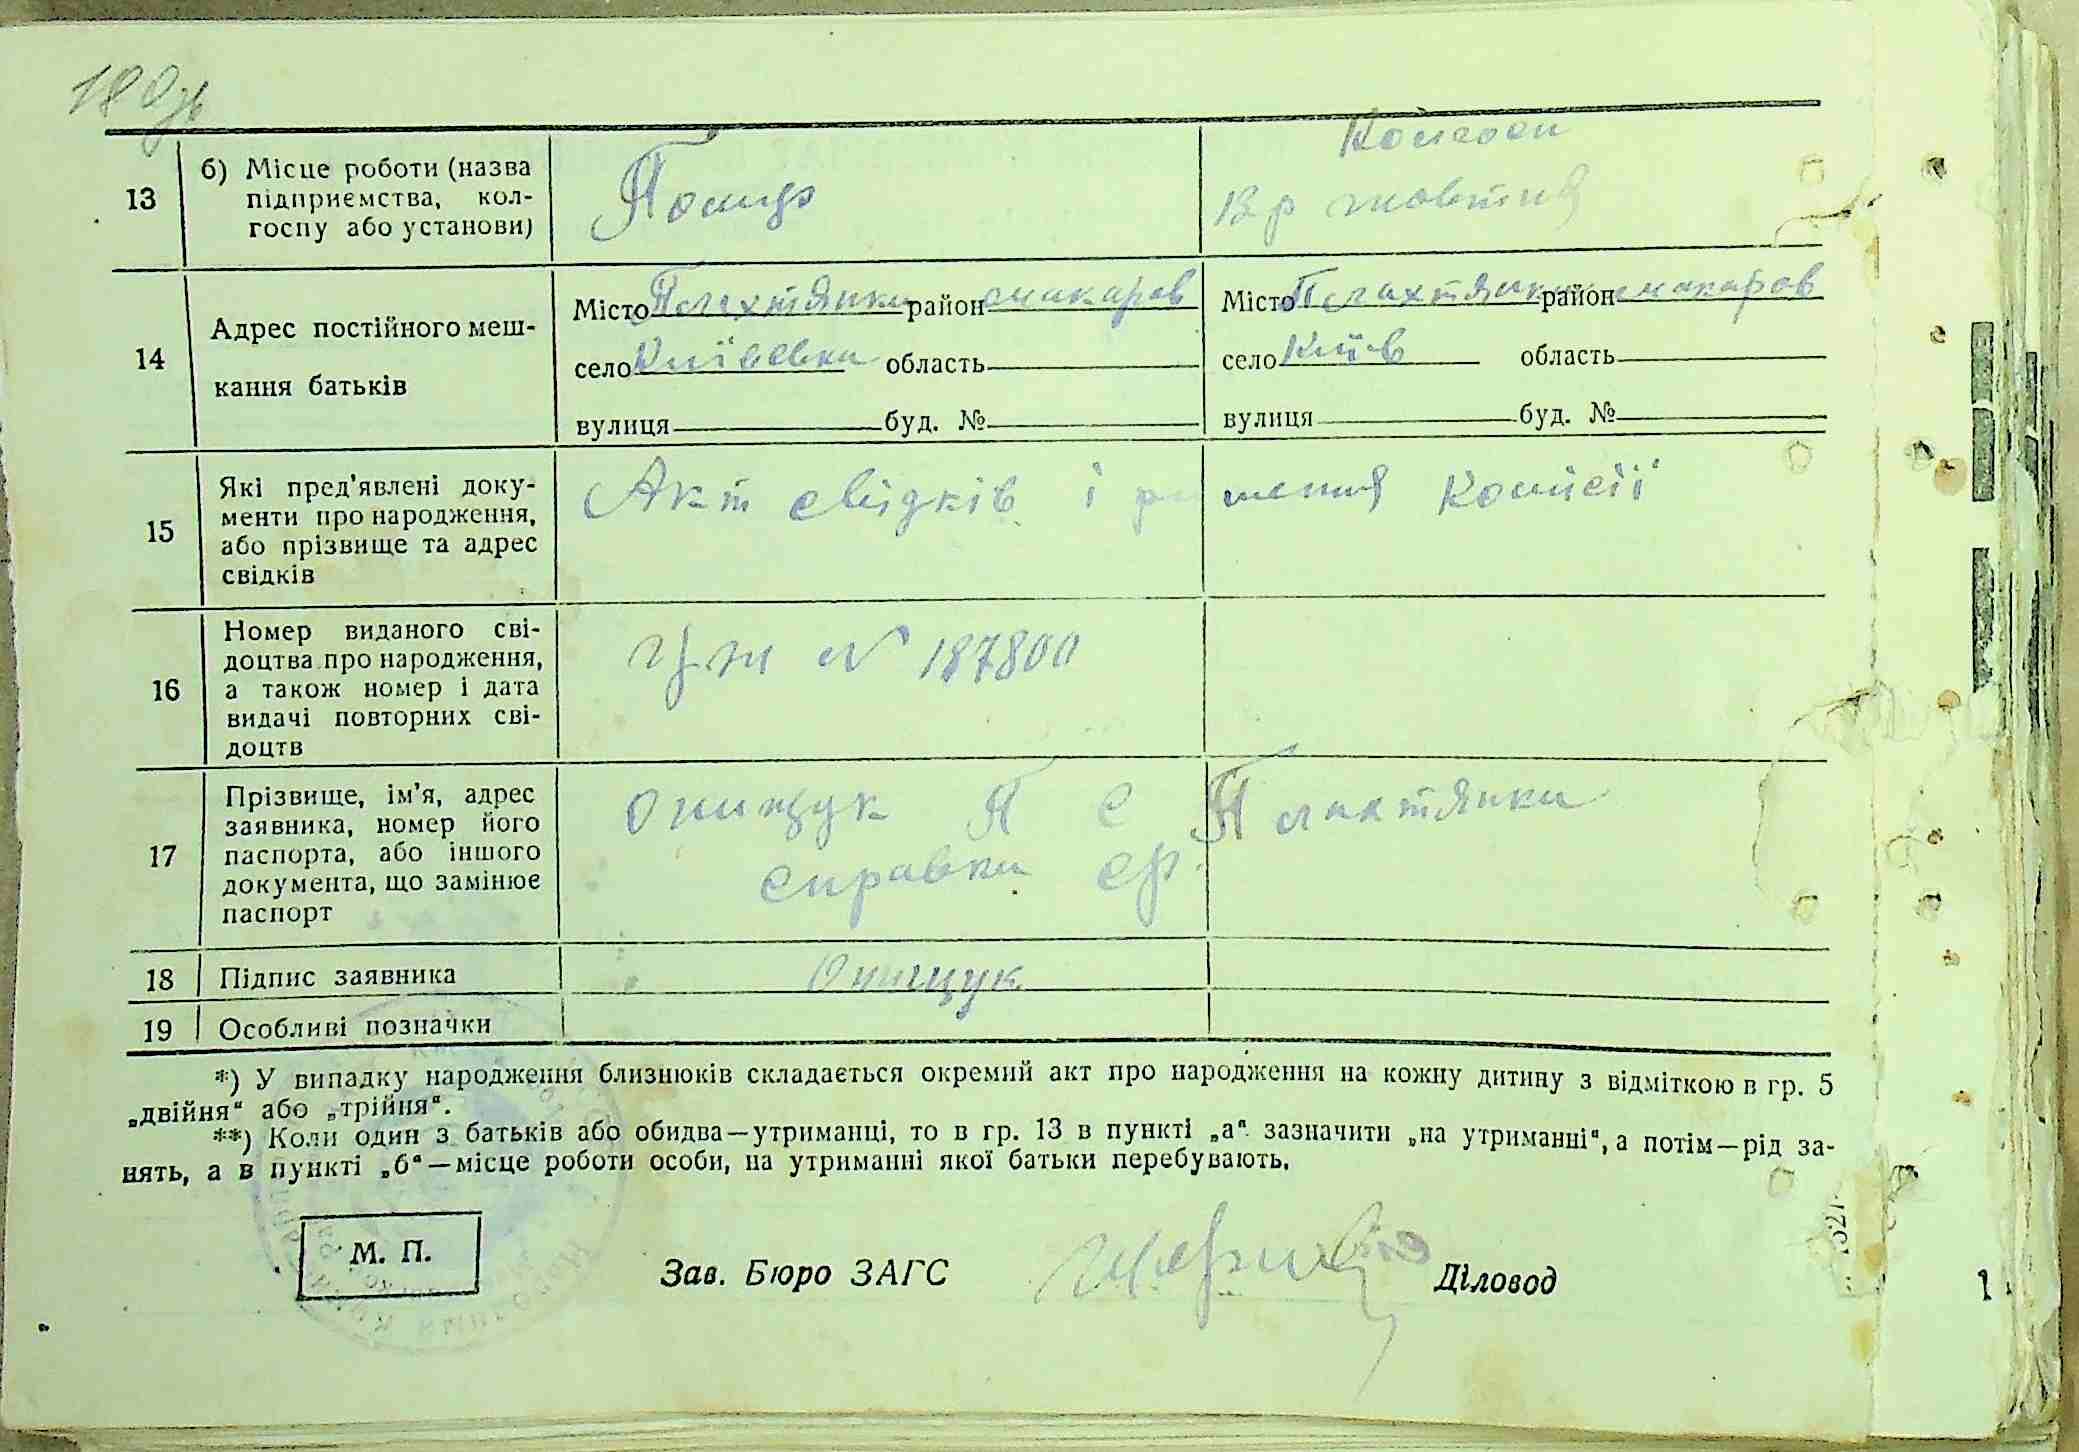 180зв
13 б) Місце роботи (назва підприємства, колгоспу або установи)
Колгосп
13 р жовтня
14 Адрес постійного мешкання батьків
Місто Плахтянка район макаров
село Київська область
вулиця буд. №
Місто Плахтянка район макаров
село Київ область
вулиця буд. №
15 Які пред'явлені документи про народження, або прізвище та адрес свідків
Акт свідків і рішення Комісії
16 Номер виданого свідоцтва про народження, а також номер і дата видачі повторних свідоцтв
N 187800
17 Прізвище, ім'я, адрес заявника, номер його паспорта, або іншого документа, що замінює паспорт
Онищук П С Плахтянка
справка ср
18 Підпис заявника
Онищук
19 Особливі позначки
*) У випадку народження близнюків складається окремий акт про народження на кожну дитину з відміткою в гр. 5
„двійня“ або „трійня“.
**) Коли один з батьків або обидва—утриманці, то в гр. 13 в пункті „а“ зазначити „на утриманні“, а потім—рід за-
нять, а в пункті „б“—місце роботи особи, на утриманні якої батьки перебувають.
М. П.
Зав. Бюро ЗАГС
Діловод